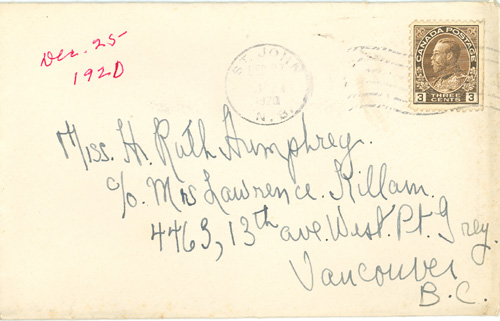 Dec. 25
1920
ST. JOHN
1920
N.B.
CANADA POSTAGE
3 THREE CENTS 3
Miss. H. Ruth Humphrey.
c/o. Mrs Lawrence Killam.
4463, 13th ave. West. Pt. Grey.
Vancouver
B.C.